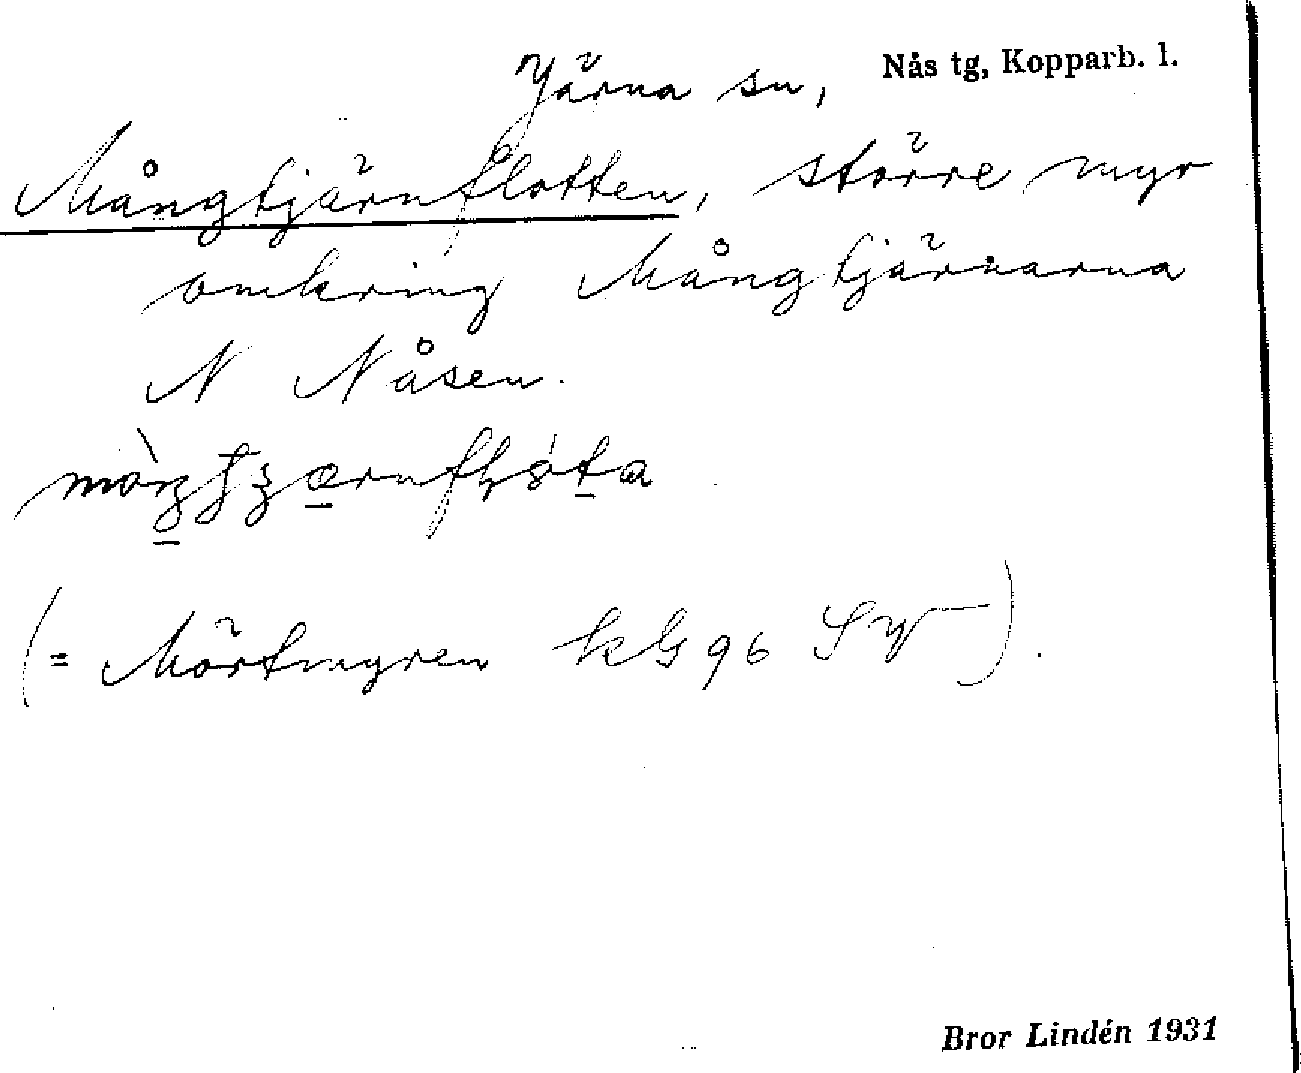 Järna sn, Nås tg, Kopparb. l.
Mångtjärnflotten, större myr
omkring Mångtjärnarna
N Nåsen.
(= Mörtmyren kG 96 SV).
Bror Lindén 1931